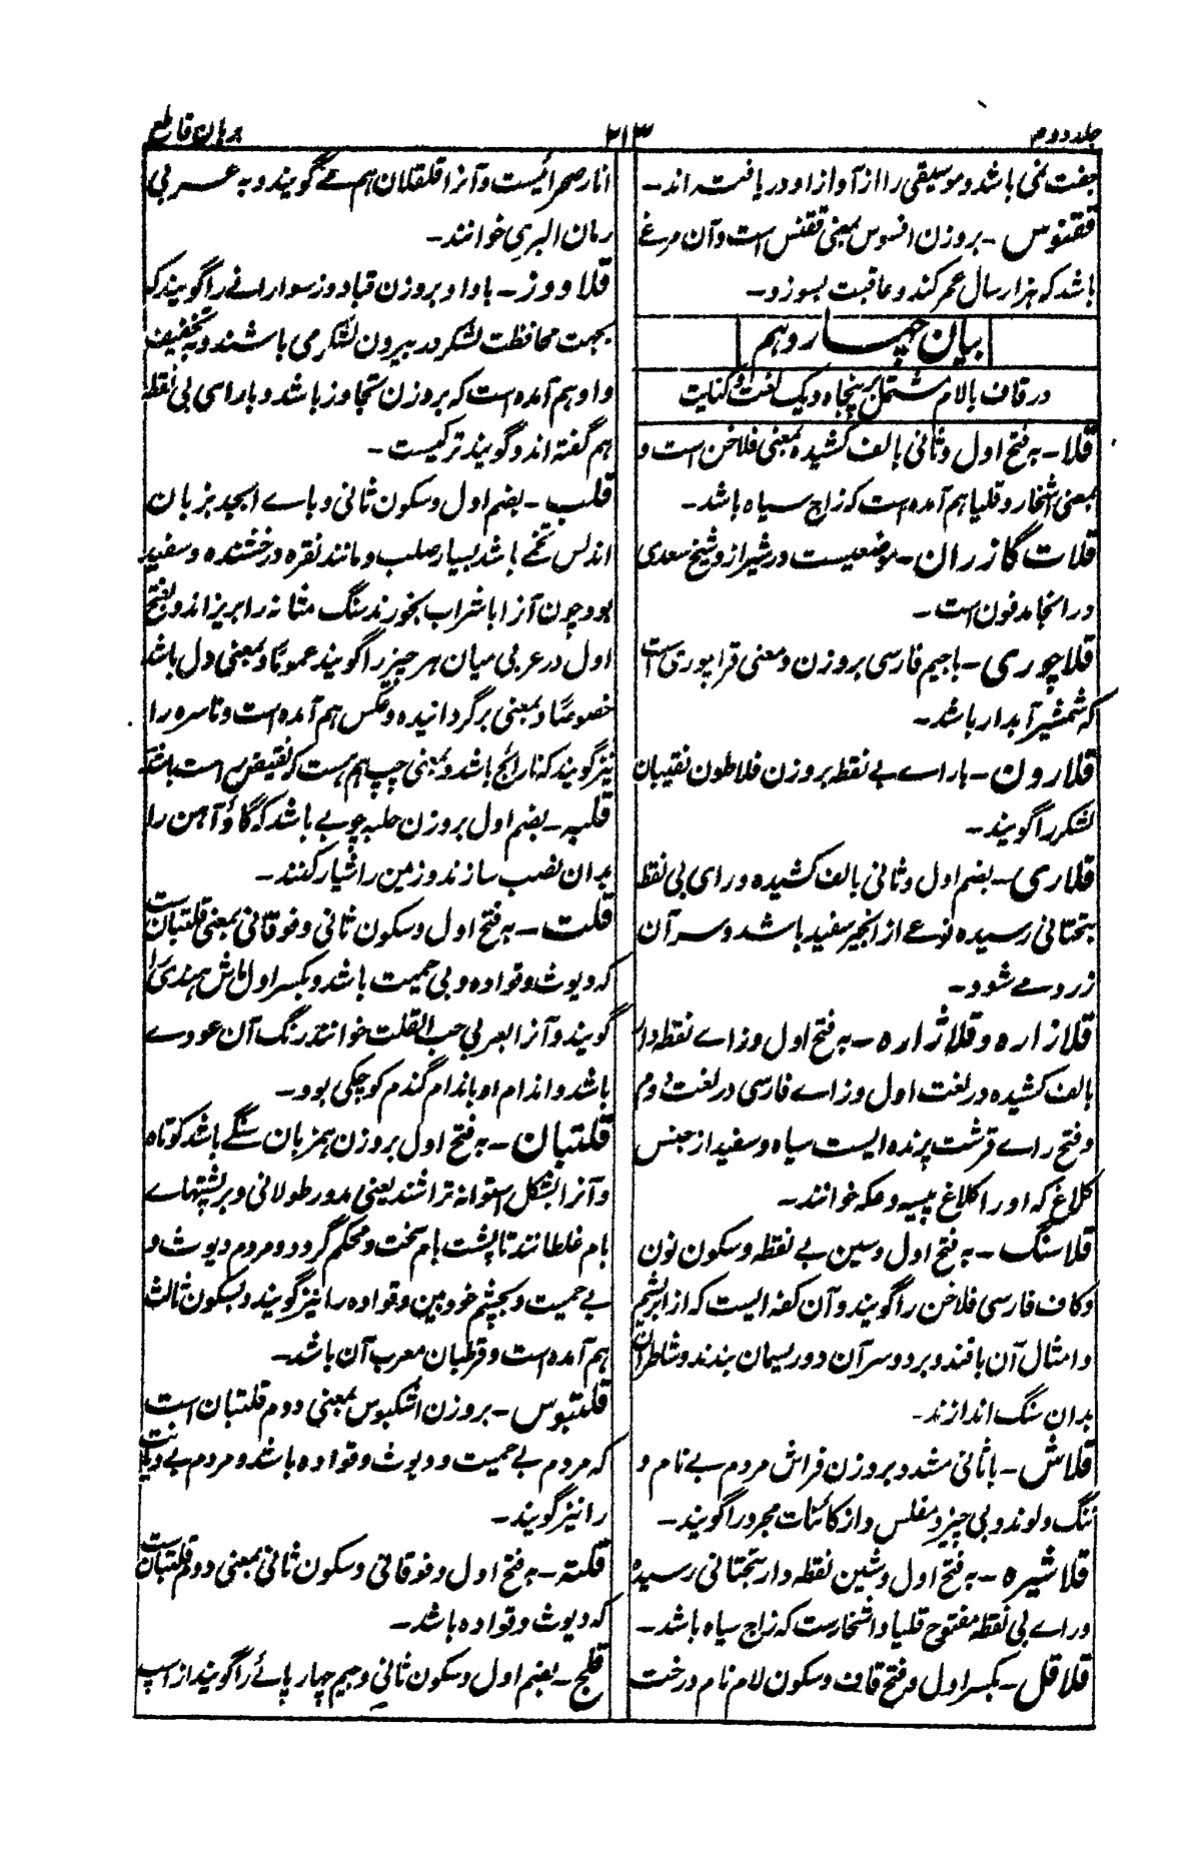 جلد دوم
۲۱۳
برہان قاطع
جفت نمی باشد و موسیقی را از آواز او دریافته اند۔
ققنوس ۔ بروزن افسوس بمعنی ققنس است و آن مرغے
باشد کہ ہزار سال عمر کند و عاقبت بسوزد۔
بیان چہاردہم
در قاف بالام مشتمل بر پنجاہ و یک لغت و کنایت
قلا۔ بہ فتح اول و ثانی بالف کشیدہ بمعنی فلاخن است و
بمعنی اشخار و قلیا ہم آمدہ است کہ زاج سیاہ باشد۔
قلات گازران۔ موضعیست در شیراز و شیخ سعدی
در آنجا مدفون است۔
قلاچوری۔ باجیم فارسی بروزن و معنی قراچوری است
کہ شمشیر آبدار باشد۔
قلارون۔ بارائے بے نقطہ بروزن فلاطون نقیبان
لشکر را گویند۔
قلاری۔ بضم اول و ثانی بالف کشیدہ و رای بی نقطہ
بتحتانی رسیدہ نوعے از انجیر سفید باشد و سر آن
زرد مے شود۔
قلازارہ و قلاژارہ۔ بہ فتح اول وزائے نقطہ دار
بالف کشیدہ در لغت اول و زائے فارسی در لغت دوم
و فتح رائے قرشت پرندہ ایست سیاہ و سفید از جنس
کلاغ کہ او را کلاغ پیسہ و عکہ خوانند۔
قلاسنگ۔ بہ فتح اول و سین بے نقطہ و سکون نون
و کاف فارسی فلاخن را گویند و آن کفہ ایست کہ از ابریشم
و امثال آن بافند و بر دو سر آن دو ریسمان بندند و شاطران
بدان سنگ اندازند۔
قلاش۔ باثانی مشدد بروزن فراش مردم بے نام و
ننگ و لوند و بی چیز و مفلس و از کائنات مجرد را گویند۔
قلاشیرہ۔ بہ فتح اول و شین نقطہ دار بتحتانی رسیدہ
و رائے بی نقطہ مفتوح قلیا و اشخارست کہ زاج سیاہ باشد۔
قلاقل۔ بکسر اول و فتح قاف و سکون لام نام درخت
انار صحرائیست و آنرا قلقلان ہم مے گویند و بہ عربی
رمان البری خوانند۔
قلاووز۔ باواو بروزن قباد وز سوارانے را گویند کہ
بجہت محافظت لشکر در بیرون لشکر می باشند و بہ تخفیف
واو ہم آمدہ است کہ بروزن تجاوز باشد و بارای بی نقطہ
ہم گفتہ اند و گویند ترکیست۔
قلب۔ بضم اول و سکون ثانی و بائے ابجد بزبان
اندلس تخمے باشد بسیار صلب و مانند نقرہ درخشندہ و سفید
بود چون آنرا با شراب بخورند سنگ مثانہ را بریزاند و بفتح
اول در عربی میان ہر چیز را گویند عموماً و بمعنی دل باشد
خصوصاً و بمعنی برگردانیدہ و عکس ہم آمدہ است و ناسرہ را
نیز گویند کہ نارائج باشد و بمعنی چپ ہم ہست کہ نقیض راست باشد
قلبہ۔ بضم اول بروزن حلبہ چوبے باشد کہ گاؤ آہن را
بدان نصب سازند و زمین را شیار کنند۔
قلت۔ بہ فتح اول و سکون ثانی و فوقانی بمعنی قلتبان است
کہ دیوث و قوادہ و بی حمیت باشد و بکسر اول ماش ہندی را
گویند و آنرا بعربی حب القلت خوانند رنگ آن عودے
باشد و اندام او باندام گندم کوچکی بود۔
قلتبان۔ بہ فتح اول بروزن ہمزبان سنگے باشد کوتاہ
و آنرا بشکل استوانہ تراشند یعنی مدور طولانی و بر پشتہائے
بام غلطانند تا پشت بام سخت و محکم گردد و مردم دیوث و
بے حمیت و بچشم خود بین و قوادہ را نیز گویند و بسکون ثالث
ہم آمدہ است و قرطبان معرب آن باشد۔
قلتبوس۔ بروزن اشکبوس بمعنی دوم قلتبان است
کہ مردم بے حمیت و دیوث و قوادہ باشد و مردم بے دیانت
را نیز گویند۔
قلتہ۔ بہ فتح اول و فوقانی و سکون ثانی بمعنی دوم قلتبان است
کہ دیوث و قوادہ باشد۔
قلج۔ بضم اول و سکون ثانی و جیم چہار پائے را گویند از اسپ